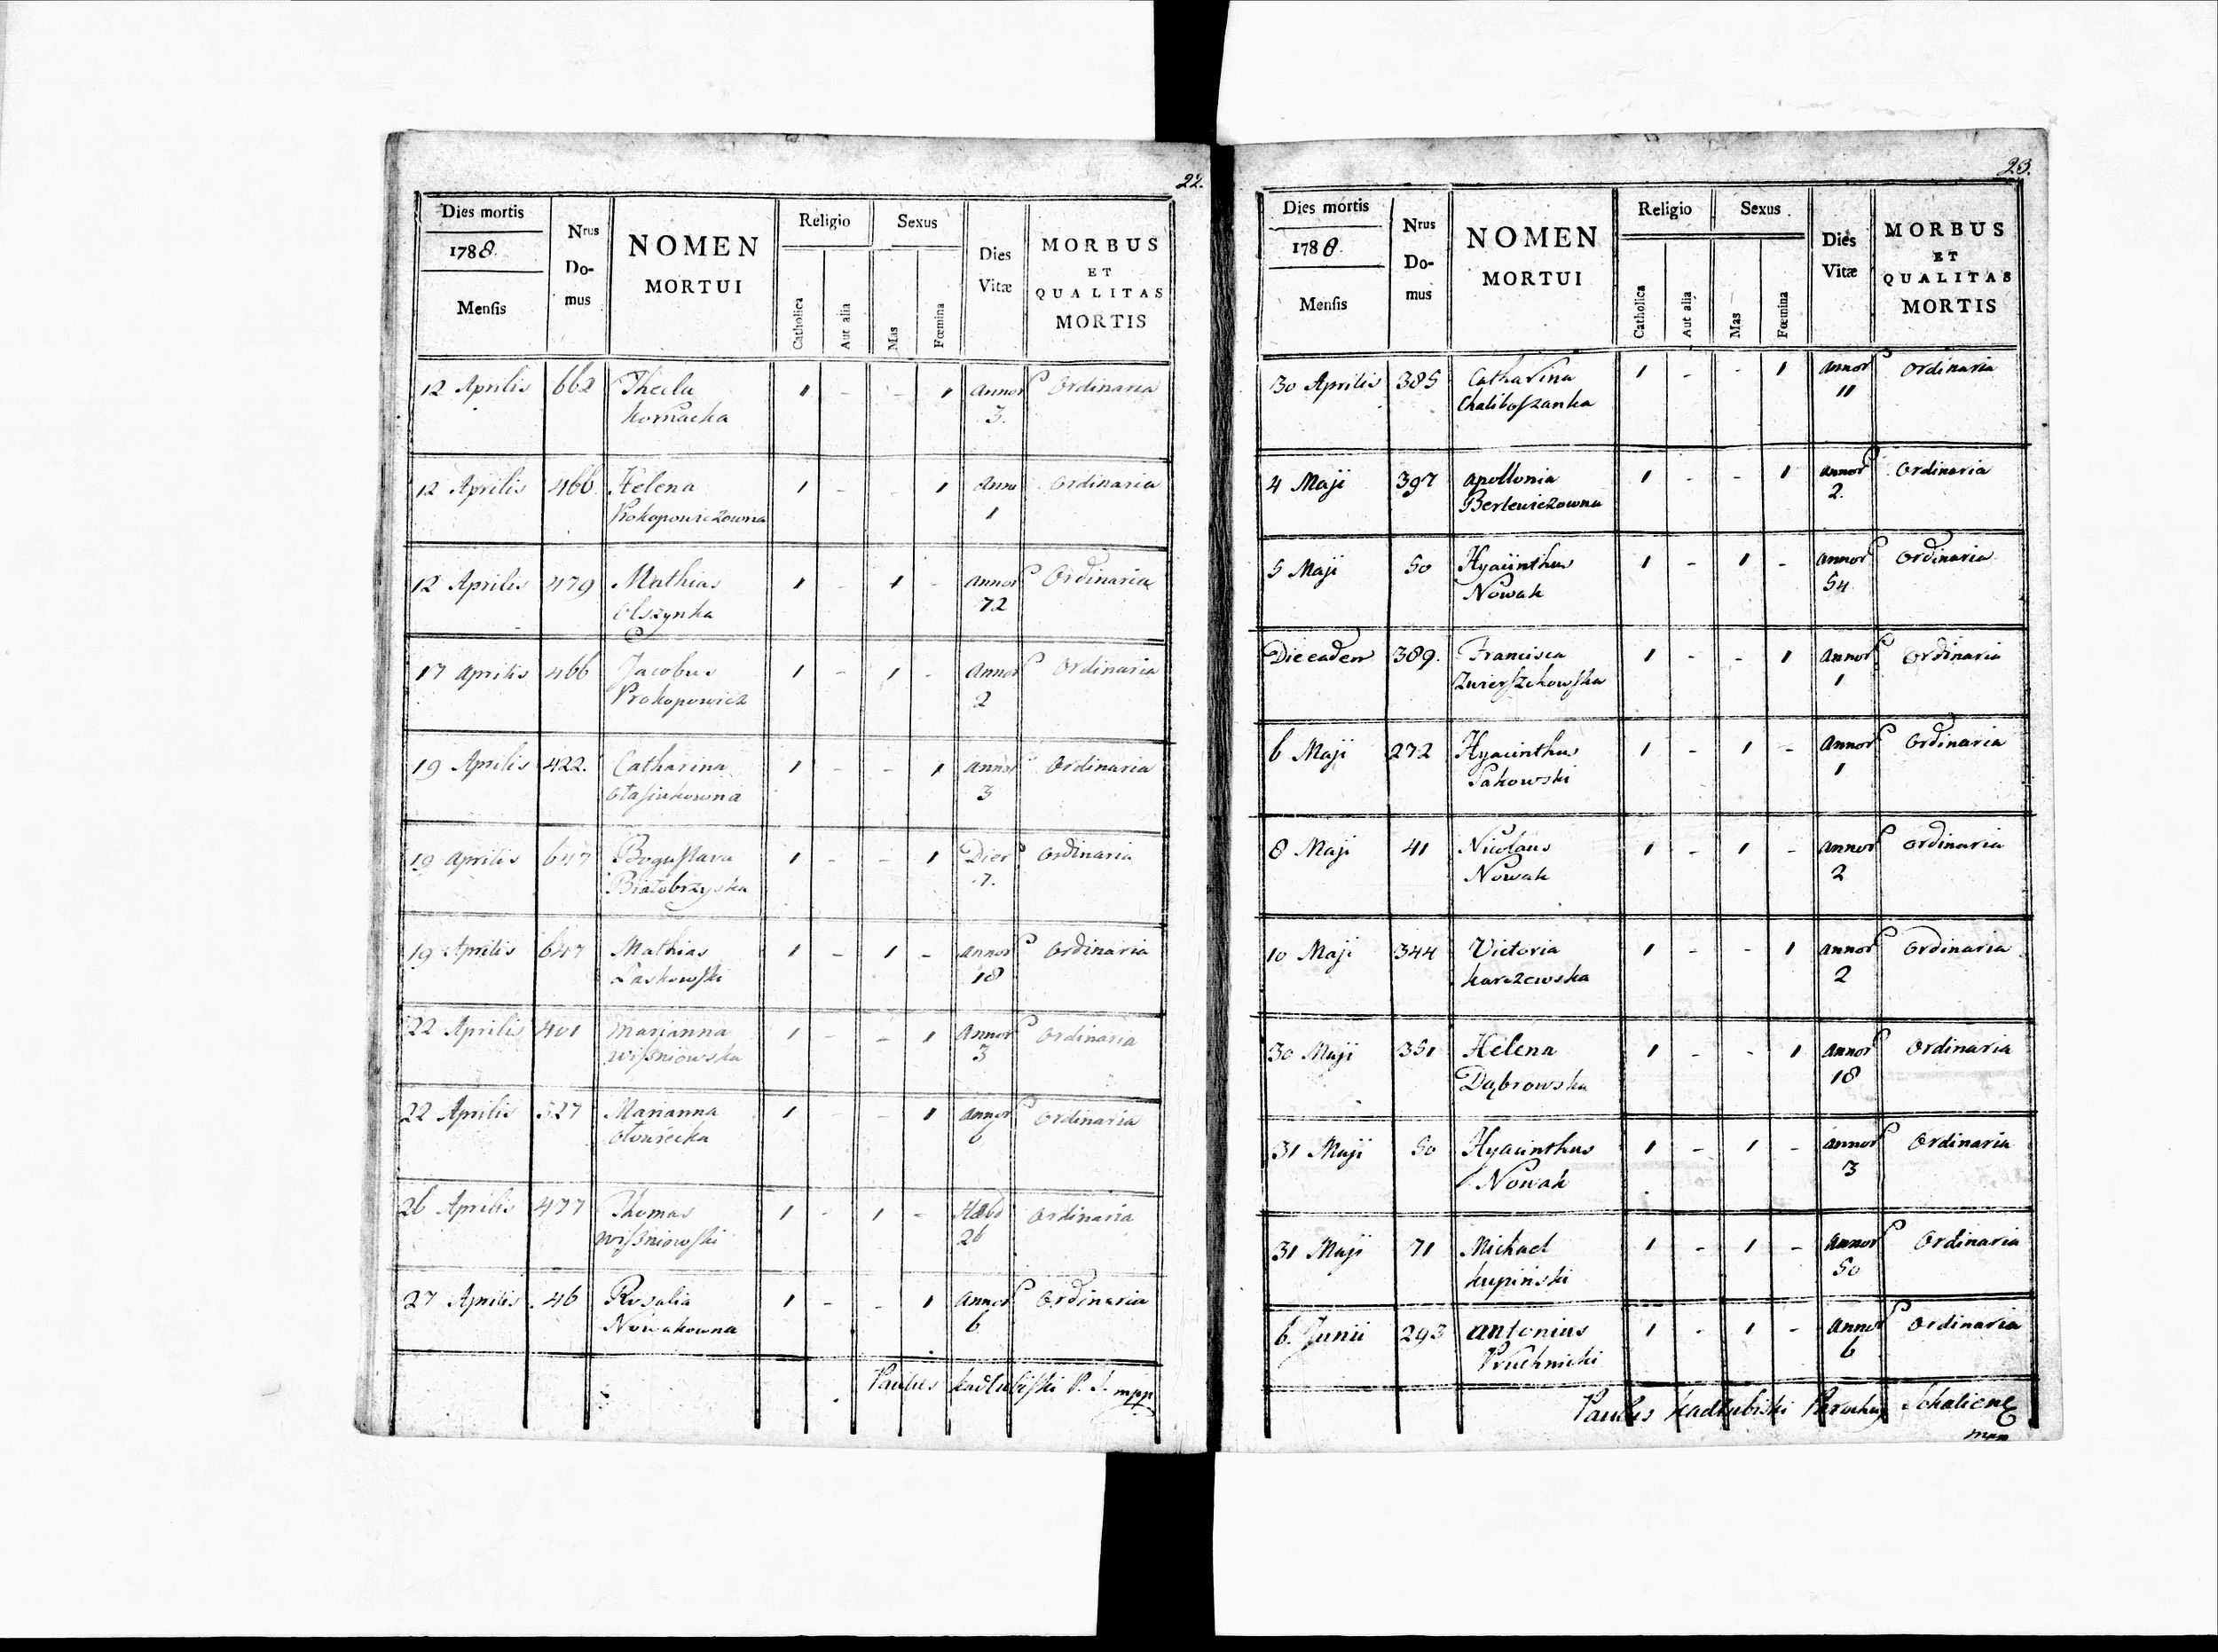 22.
Dies mortis
1788.
Mensis
Nrus
Do-
mus
NOMEN
MORTUI
Religio
Catholica
Aut alia
Sexus
Mas
Fœmina
Dies
Vitæ
MORBUS
ET
QUALITAS
MORTIS
12 Aprilis 662 Thecla 1 - - 1 Annor Ordinaria
Kornacka 3.
12 Aprilis 466 Helena 1 - - 1 Anno Ordinaria
Prokopowiczowna 1
12 Aprilis 479 Mathias 1 - 1 - Annor Ordinaria
Olszynka 72
17 Aprilis 466 Jacobus 1 - 1 - Annor Ordinaria
Prokopowicz 2
19 Aprilis 422. Catharina 1 - - 1 Annor Ordinaria
3
19 Aprilis 647 Boguslava 1 - - 1 Dier Ordinaria
Białobrzyska 7.
19 Aprilis 647 Mathias 1 - 1 - Annor Ordinaria
Laskowski 18
22 Aprilis 401 Marianna 1 - - 1 Annor Ordinaria
Wiśniowska 3
22 Aprilis 527 Marianna 1 - - 1 Annor Ordinaria
Otowiecka 6
26 Aprilis 477 Thomas 1 - 1 - Hebd Ordinaria
Wiśniowski 26
27 Aprilis 46 Rosalia 1 - - 1 Annor Ordinaria
Nowakowna 6
Paulus Kadłubiski P. S. mpp
23.
Dies mortis
1788.
Mensis
Nrus
Do-
mus
NOMEN
MORTUI
Religio
Catholica
Aut alia
Sexus
Mas
Fœmina
Dies
Vitæ
MORBUS
ET
QUALITAS
MORTIS
30 Aprilis 385 Catharina 1 - - 1 Annor Ordinaria
Chaliboszanka 11
4 Maji 397 Apollonia 1 - - 1 Annor Ordinaria
Berlewiczowna 2.
5 Maji 50 Hyacinthus 1 - 1 - Annor Ordinaria
Nowak 54
Die eadem 389. Francisca 1 - - 1 Annor Ordinaria
Zwierszchowska 1
6 Maji 272 Hyacinthus 1 - 1 - Annor Ordinaria
Sakowski 1
8 Maji 41 Nicolaus 1 - 1 - Annor Ordinaria
Nowak 2
10 Maji 344 Victoria 1 - - 1 Annor Ordinaria
Karczewska 2
30 Maji 351 Helena 1 - - 1 Annor Ordinaria
Dąbrowska 18
31 Maji 50 Hyacinthus 1 - 1 - Annor Ordinaria
Nowak 3
31 Maji 71 Michael 1 - 1 - Annor Ordinaria
Kupiński 50
6. Junii 293 Antonius 1 - 1 - Annor Ordinaria
Pruchnicki 6
Paulus Kadłubiski Parochus Sokaliens
mpp